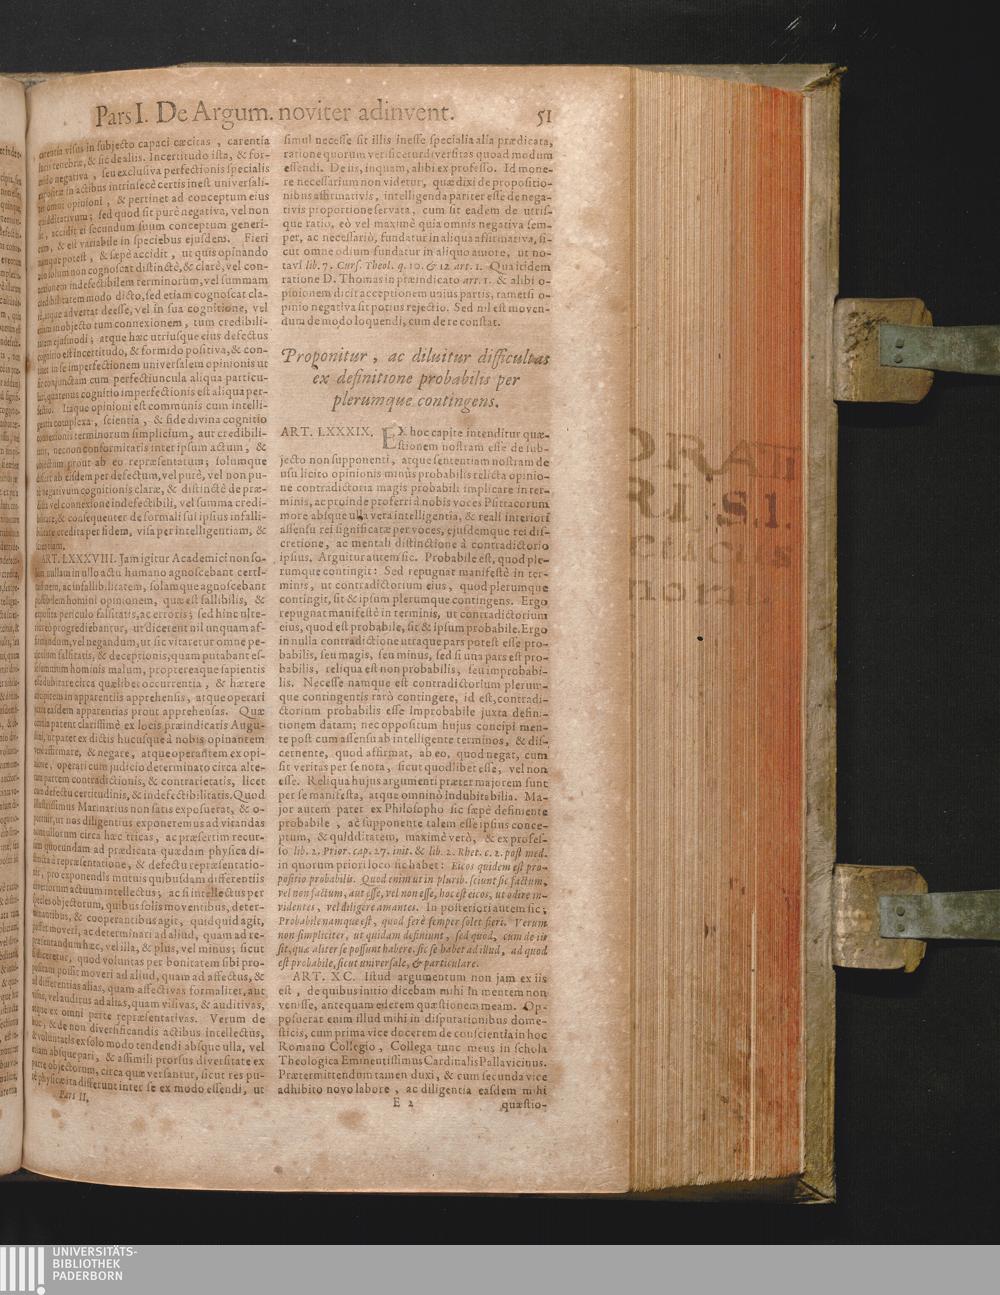 Pars I. De Argum. noviter adinvent. 51
carentia visus in subjecto capaci cæcitas , carentia
lucis tenebræ, & sic de aliis. Incertitudo ista, & for-
mido negativa , seu exclusiva perfectionis specialis
repositæ in actibus intrinsecè certis inest universali-
ter omni opinioni , & pertinet ad conceptum eius
quidditativum ; sed quod sit purè negativa, vel non
sit, accidit ei secundum suum conceptum generi-
cum, & est variabile in speciebus ejusdem. Fieri
namque potest , & sæpè accidit , ut quis opinando
non solum non cognoscat distinctè, & clarè, vel con-
nexionem indefectibilem terminorum, vel summam
credibilitatem modo dicto, sed etiam cognoscat cla-
rè, atque advertat deesse, vel in sua cognitione, vel
etiam in objecto tum connexionem , tum credibili-
tatem ejusmodi ; atque hæc utriusque eius defectus
cognitio est incertitudo, & formido positiva, & con-
tinet in se imperfectionem universalem opinionis ut
sic conjunctam cum perfectiuncula aliqua particu-
lari, quatenus cognitio imperfectionis est aliqua per-
fectio. Itaque opinioni est communis cum intelli-
gentia complexa , scientia , & fide divina cognitio
connexionis terminorum simplicium, aut credibili-
tatis, necnon conformitatis inter ipsum actum , &
objectum prout ab eo repræsentatum ; solumque
differt ab eisdem per defectum, vel purè, vel non pu-
rè negativum cognitionis claræ, & distinctè de præ-
dicta vel connexione indefectibili, vel summa credi-
bilitate, & consequenter de formali sui ipsius infalli-
bilitate credita per fidem, visa per intelligentiam, &
scientiam.
ART. LXXXVIII. Jam igitur Academici non so-
lum nullam in ullo actu humano agnoscebant certi-
tudinem, ac infallibilitatem, solamque agnoscebant
possibilem homini opinionem, quæ est fallibilis, &
exposita periculo falsitatis, ac erroris ; sed hinc ulte-
rius eò progrediebantur, ut dicerent nil unquam af-
firmandum, vel negandum, ut sic vitaretur omne pe-
riculum falsitatis, & deceptionis, quam putabant es-
se summum hominis malum, proptereaque sapientis
esse dubitare circa quælibet occurrentia , & hærere
ancipitem in apparentiis apprehensis, atque operari
juxta easdem apparentias prout apprehensas. Quæ
omnia patent clarissimè ex locis præindicatis Augu-
stini, ut patet ex dictis hucusque à nobis opinantem
verè affirmare, & negare, atque operantem ex opi-
nione , operari cum judicio determinato circa alte-
ram partem contradictionis, & contrarietatis, licet
cum defectu certitudinis, & indefectibilitatis. Quod
Illustrissimus Marinarius non satis exposuerat, & o-
portuit, ut nos diligentius exponeremus ad vitandas
nonnullorum circa hæc tricas, ac præsertim recur-
sum quorundam ad prædicata quædam physica di-
stincta à repræsentatione, & defectu repræsentatio-
nis, pro exponendis mutuis quibusdam differentiis
interiorum actuum intellectus ; ac si intellectus per
species objectorum, quibus solis moventibus, deter-
minantibus, & cooperantibus agit, quidquid agit,
posset moveri, ac determinari ad aliud, quam ad re-
præsentandum hæc, vel illa, & plus, vel minus; sicut
si diceretur, quod voluntas per bonitatem sibi pro-
positam possit moveri ad aliud, quam ad affectus, &
ad differentias alias, quam affectivas formaliter, aut
visus, vel auditus ad alias, quam visivas, & auditivas,
atque ex omni parte repræsentativas. Verum de
hoc, & de non diversificandis actibus intellectus,
& voluntatis ex solo modo tendendi absque ulla, vel
etiam absque pari, & assimili prorsus diversitate ex
parte objectorum, circa quæ versantur, sicut res pu-
rè physicæ ita differunt inter se ex modo essendi, ut
Pars II.
simul necesse sit illis inesse specialia alia prædicata,
ratione quorum verificetur diversitas quoad modum
essendi. De iis, inquam, alibi ex professo. Id mone-
re necessarium non videtur, quæ dixi de propositio-
nibus affirmativis, intelligenda pariter esse de nega-
tivis proportione servata, cum sit eadem de utris-
que ratio, eò vel maximè quia omnis negativa sem-
per, ac necessariò, fundatur in aliqua affirmativa, si-
cut omne odium fundatur in aliquo amore, ut no-
tavi lib. 7. Curs. Theol. q. 10. & 12. art. 1. Qua itidem
ratione D. Thomas in præindicato art. 1. & alibi o-
pinionem dicit acceptionem unius partis, tametsi o-
pinio negativa sit potius rejectio. Sed nil est moven-
dum de modo loquendi, cum de re constat.
Proponitur , ac diluitur difficultas
ex definitione probabilis per
plerumque contingens.
ART. LXXXIX. EX hoc capite intenditur quæ-
stionem nostram esse de sub-
jecto non supponenti, atque sententiam nostram de
usu licito opinionis minùs probabilis relicta opinio-
ne contradictoria magis probabili implicare in ter-
minis, ac proinde proferri à nobis voces Psittacorum
more absque ulla vera intelligentia, & reali interiori
assensu rei significatæ per voces, ejusdemque rei dis-
cretione, ac mentali distinctione à contradictorio
ipsius. Arguitur autem sic. Probabile est, quod ple-
rumque contingit: Sed repugnat manifestè in ter-
minis , ut contradictorium eius , quod plerumque
contingit, sit & ipsum plerumque contingens. Ergo
repugnat manifestè in terminis, ut contradictorium
eius, quod est probabile, sit & ipsum probabile. Ergo
in nulla contradictione utraque pars potest esse pro-
babilis, seu magis, seu minus, sed si una pars est pro-
babilis , reliqua est non probabilis , seu improbabi-
lis. Necesse namque est contradictorium plerum-
que contingentis rarò contingere, id est, contradi-
ctorium probabilis esse improbabile juxta defini-
tionem datam; nec oppositum hujus concipi men-
te post cum assensu ab intelligente terminos, & dis-
cernente, quod affirmat, ab eo, quod negat, cum
sit veritas per se nota , sicut quodlibet esse, vel non
esse. Reliqua hujus argumenti præter majorem sunt
per se manifesta, atque omninò indubitabilia. Ma-
jor autem patet ex Philosopho sic sæpè definiente
probabile , ac supponente talem esse ipsius conce-
ptum, & quidditatem, maximè verò, & ex profes-
so lib. 2. Prior. cap. 27. init. & lib. 2. Rhet. c. 2. post med.
in quorum priori loco sic habet : Eicos quidem est pro-
positio probabilis. Quod enim ut in plurib. sciunt sic factum,
vel non factum, aut esse, vel non esse, hoc est eicos, ut odire in-
videntes , vel diligere amantes. In posteriori autem sic ;
Probabile namque est , quod ferè semper solet fieri. Verum
non simpliciter, ut quidam definiunt , sed quod, cum de iis
sit, quæ aliter se possunt habere, sic se habet ad illud, ad quod
est probabile, sicut universale, & particulare.
ART. XC. Istud argumentum non jam ex iis
est , de quibus initio dicebam mihi in mentem non
venisse, antequam ederem quæstionem meam. Op-
posuerat enim illud mihi in disputationibus dome-
sticis, cum prima vice docerem de conscientia in hoc
Romano Collegio , Collega tunc meus in schola
Theologica Eminentissimus Cardinalis Pallavicinus.
Prætermittendum tamen duxi, & cum secunda vice
adhibito novo labore , ac diligentia easdem mihi
E 2 quæstio-
S.I.
UNIVERSITÄTS-
BIBLIOTHEK
PADERBORN